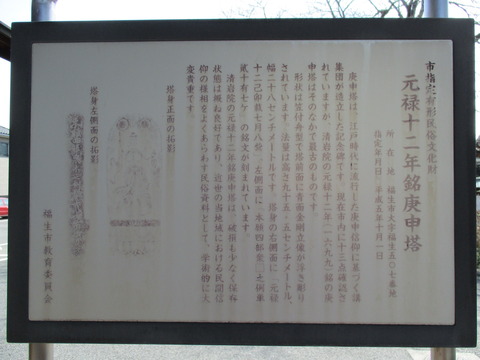 市指定有形民俗文化財
元禄十二年銘庚申塔
所在地 福生市大字福生五〇七番地
指定年月日 平成五年十月一日
庚申塔は、江戸時代に流行した庚申信仰に基づく講
集団が造立した記念碑です。現在市内に十三点確認さ
れていますが、清岩院の元禄十二年(一六九九)銘の庚
申塔はそのなかで最古のものです。
形状は笠付舟型で塔前面に青面金剛立像が浮き彫り
されています。法量は高さ九十五・五センチメートル、
幅二十八センチメートルです。塔身の右側面に「元禄
十二己卯載七月八祭」、左側面に「本願四郎衆
貳十有七ヶ」の銘文が刻まれています。
清岩院の元禄十二年銘庚申塔は、破損も少なく保存
状態は概ね良好であり、近世の当地域における民間信
仰の様相をよくあらわす民俗資料として、学術的に大
変貴重です。
塔身正面の拓影
塔身左側面の拓影
福生市教育委員会